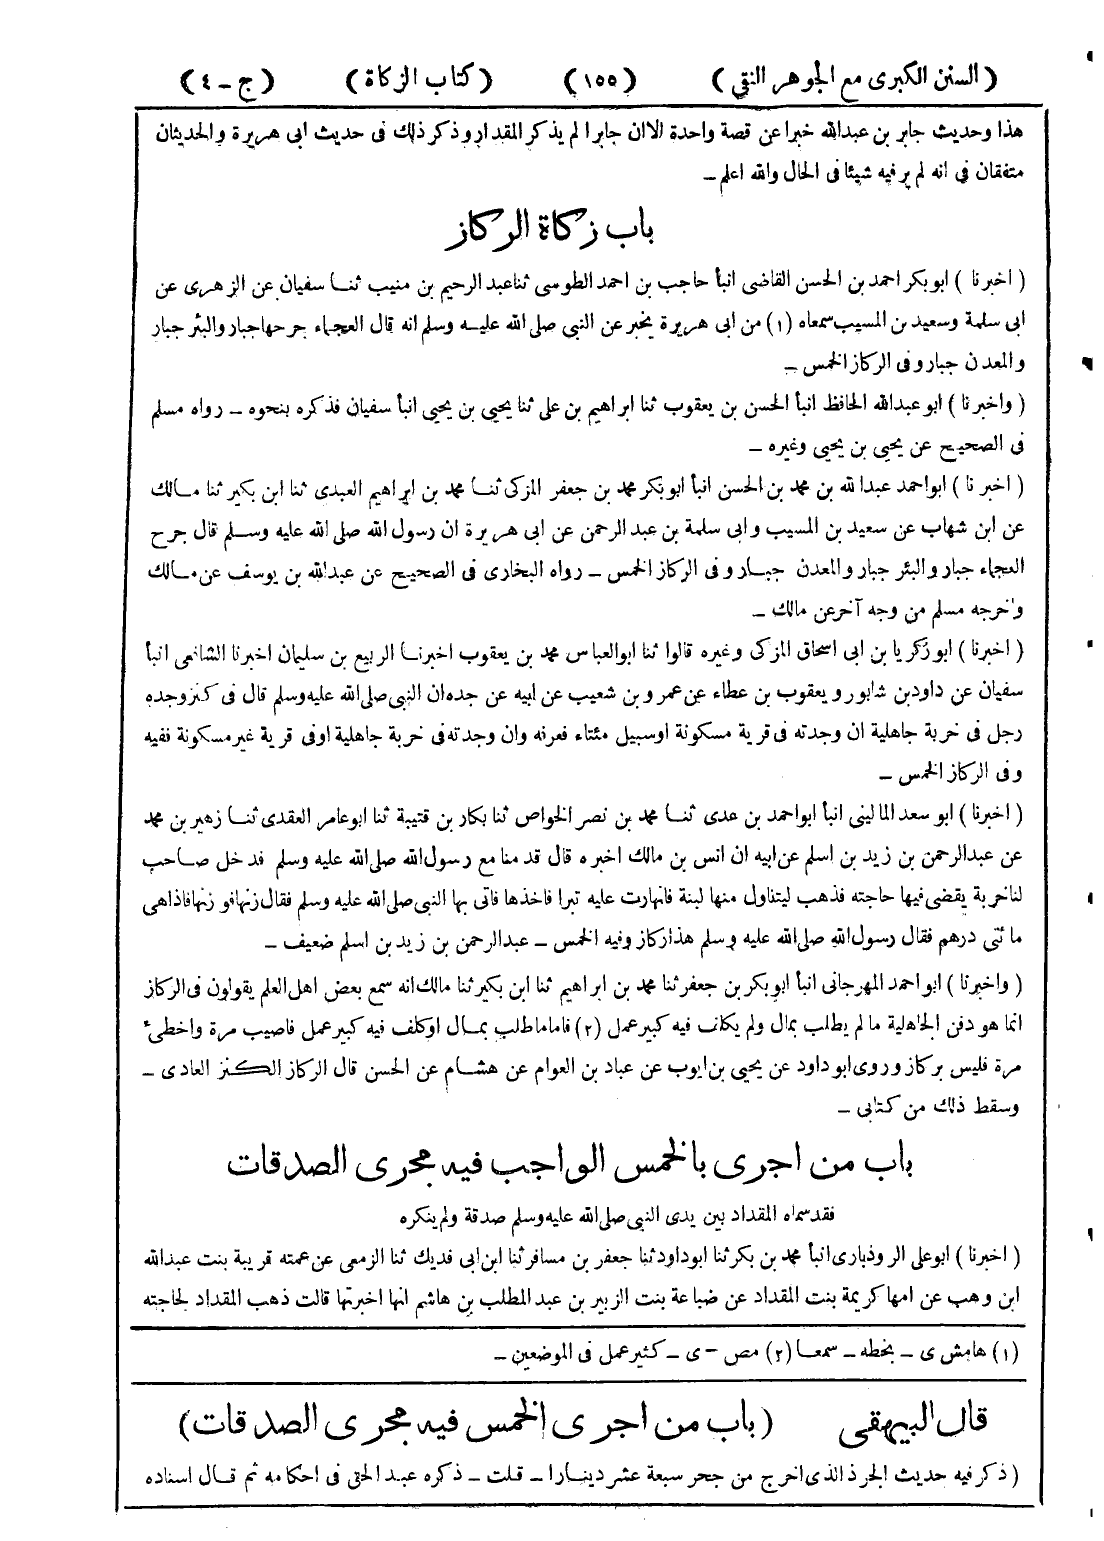 ( السنن الكبرى مع الجوهر النقى ) ( ١٥٥ ) ( كتاب الزكاة ) ( ج - ٤ )
هذا وحديث جابر بن عبدالله خبرا عن قصة واحدة الاان جابرا لم يذكر المقدار وذكر ذلك فى حديث ابى هريرة والحديثان
متفقان فى انه لم ير فيه شيئا فى الحال والله اعلم ـ
باب زكاة الركاز
( اخبرنا ) ابوبكر احمد بن الحسن القاضى انبأ حاجب بن احمد الطوسى ثنا عبد الرحيم بن منيب ثنا سفيان عن الزهرى عن
ابى سلمة وسعيد بن المسيب سمعاه (١) من ابى هريرة يخبر عن النبى صلى الله عليه وسلم انه قال العجماء جرحها جبار والبئر جبار
والمعدن جبار وفى الركاز الخمس ـ
( واخبرنا ) ابو عبدالله الحافظ انبأ الحسن بن يعقوب ثنا ابراهيم بن على ثنا يحيى بن يحيى انبأ سفيان فذكره بنحوه ـ رواه مسلم
فى الصحيح عن يحيى بن يحيى وغيره ـ
( اخبرنا ) ابواحمد عبدالله بن محمد بن الحسن انبأ ابوبكر محمد بن جعفر المزكى ثنا محمد بن ابراهيم العبدى ثنا ابن بكير ثنا مالك
عن ابن شهاب عن سعيد بن المسيب وابى سلمة بن عبد الرحمن عن ابى هريرة ان رسول الله صلى الله عليه وسلم قال جرح
العجماء جبار والبئر جبار والمعدن جبار وفى الركاز الخمس ـ رواه البخارى فى الصحيح عن عبدالله بن يوسف عن مالك
واخرجه مسلم من وجه آخر عن مالك ـ
( اخبرنا ) ابو زكريا بن ابى اسحاق المزكى وغيره قالوا ثنا ابوالعباس محمد بن يعقوب اخبرنا الربيع بن سليمان اخبرنا الشافعى انبأ
سفيان عن داود بن شابور ويعقوب بن عطاء عن عمرو بن شعيب عن ابيه عن جده ان النبى صلى الله عليه وسلم قال فى كنز وجده
رجل فى خربة جاهلية ان وجدته فى قرية مسكونة اوسبيل مئتاء فعرفه وان وجدته فى خربة جاهلية اوفى قرية غير مسكونة ففيه
وفى الركاز الخمس ـ
( اخبرنا ) ابو سعد المالينى انبأ ابواحمد بن عدى ثنا محمد بن نصر الخواص ثنا بكار بن قتيبة ثنا ابوعامر العقدى ثنا زهير بن محمد
عن عبدالرحمن بن زيد بن اسلم عن ابيه ان انس بن مالك اخبره قال قدمنا مع رسول الله صلى الله عليه وسلم فدخل صاحب
لنا خربة يقضى فيها حاجته فذهب ليتناول منها لبنة فانهارت عليه تبرا فاخذها فاتى بها النبى صلى الله عليه وسلم فقال زنها فوزنها فاذا هى
مائتى درهم فقال رسول الله صلى الله عليه وسلم هذا ركاز وفيه الخمس ـ عبدالرحمن بن زيد بن اسلم ضعيف ـ
( واخبرنا ) ابو احمد المهرجانى انبأ ابوبكر بن جعفر ثنا محمد بن ابراهيم ثنا ابن بكير ثنا مالك انه سمع بعض اهل العلم يقولون فى الركاز
انما هو دفن الجاهلية ما لم يطلب بمال ولم يكلف فيه كبير عمل (٢) فاما ما طلب بمال اوكلف فيه كبير عمل فاصيب مرة واخطىء
مرة فليس بركاز وروى ابو داود عن يحيى بن ايوب عن عباد بن العوام عن هشام عن الحسن قال الركاز الكنز العادى ـ
وسقط ذلك من كتابى ـ
باب من اجرى بالخمس الواجب فيه مجرى الصدقات
فقد سماه المقداد بين يدى النبى صلى الله عليه وسلم صدقة ولم ينكره
( اخبرنا ) ابو على الروذبارى انبأ محمد بن بكر ثنا ابوداود ثنا جعفر بن مسافر ثنا ابن ابى فديك ثنا الزمعى عن عمته قريبة بنت عبدالله
ابن وهب عن امها كريمة بنت المقداد عن ضباعة بنت الزبير بن عبد المطلب بن هاشم انها اخبرتها قالت ذهب المقداد لحاجته
(١) هامش ى ـ بخطه ـ سمعا (٢) مص - ى ـ كثير عمل فى الموضعين ـ
قال البيهقى ( باب من اجرى الخمس فيه مجرى الصدقات )
( ذكر فيه حديث الجرذ الذى اخرج من جحر سبعة عشر دينارا ـ قلت ـ ذكره عبد الحق فى احكامه ثم قال اسناده